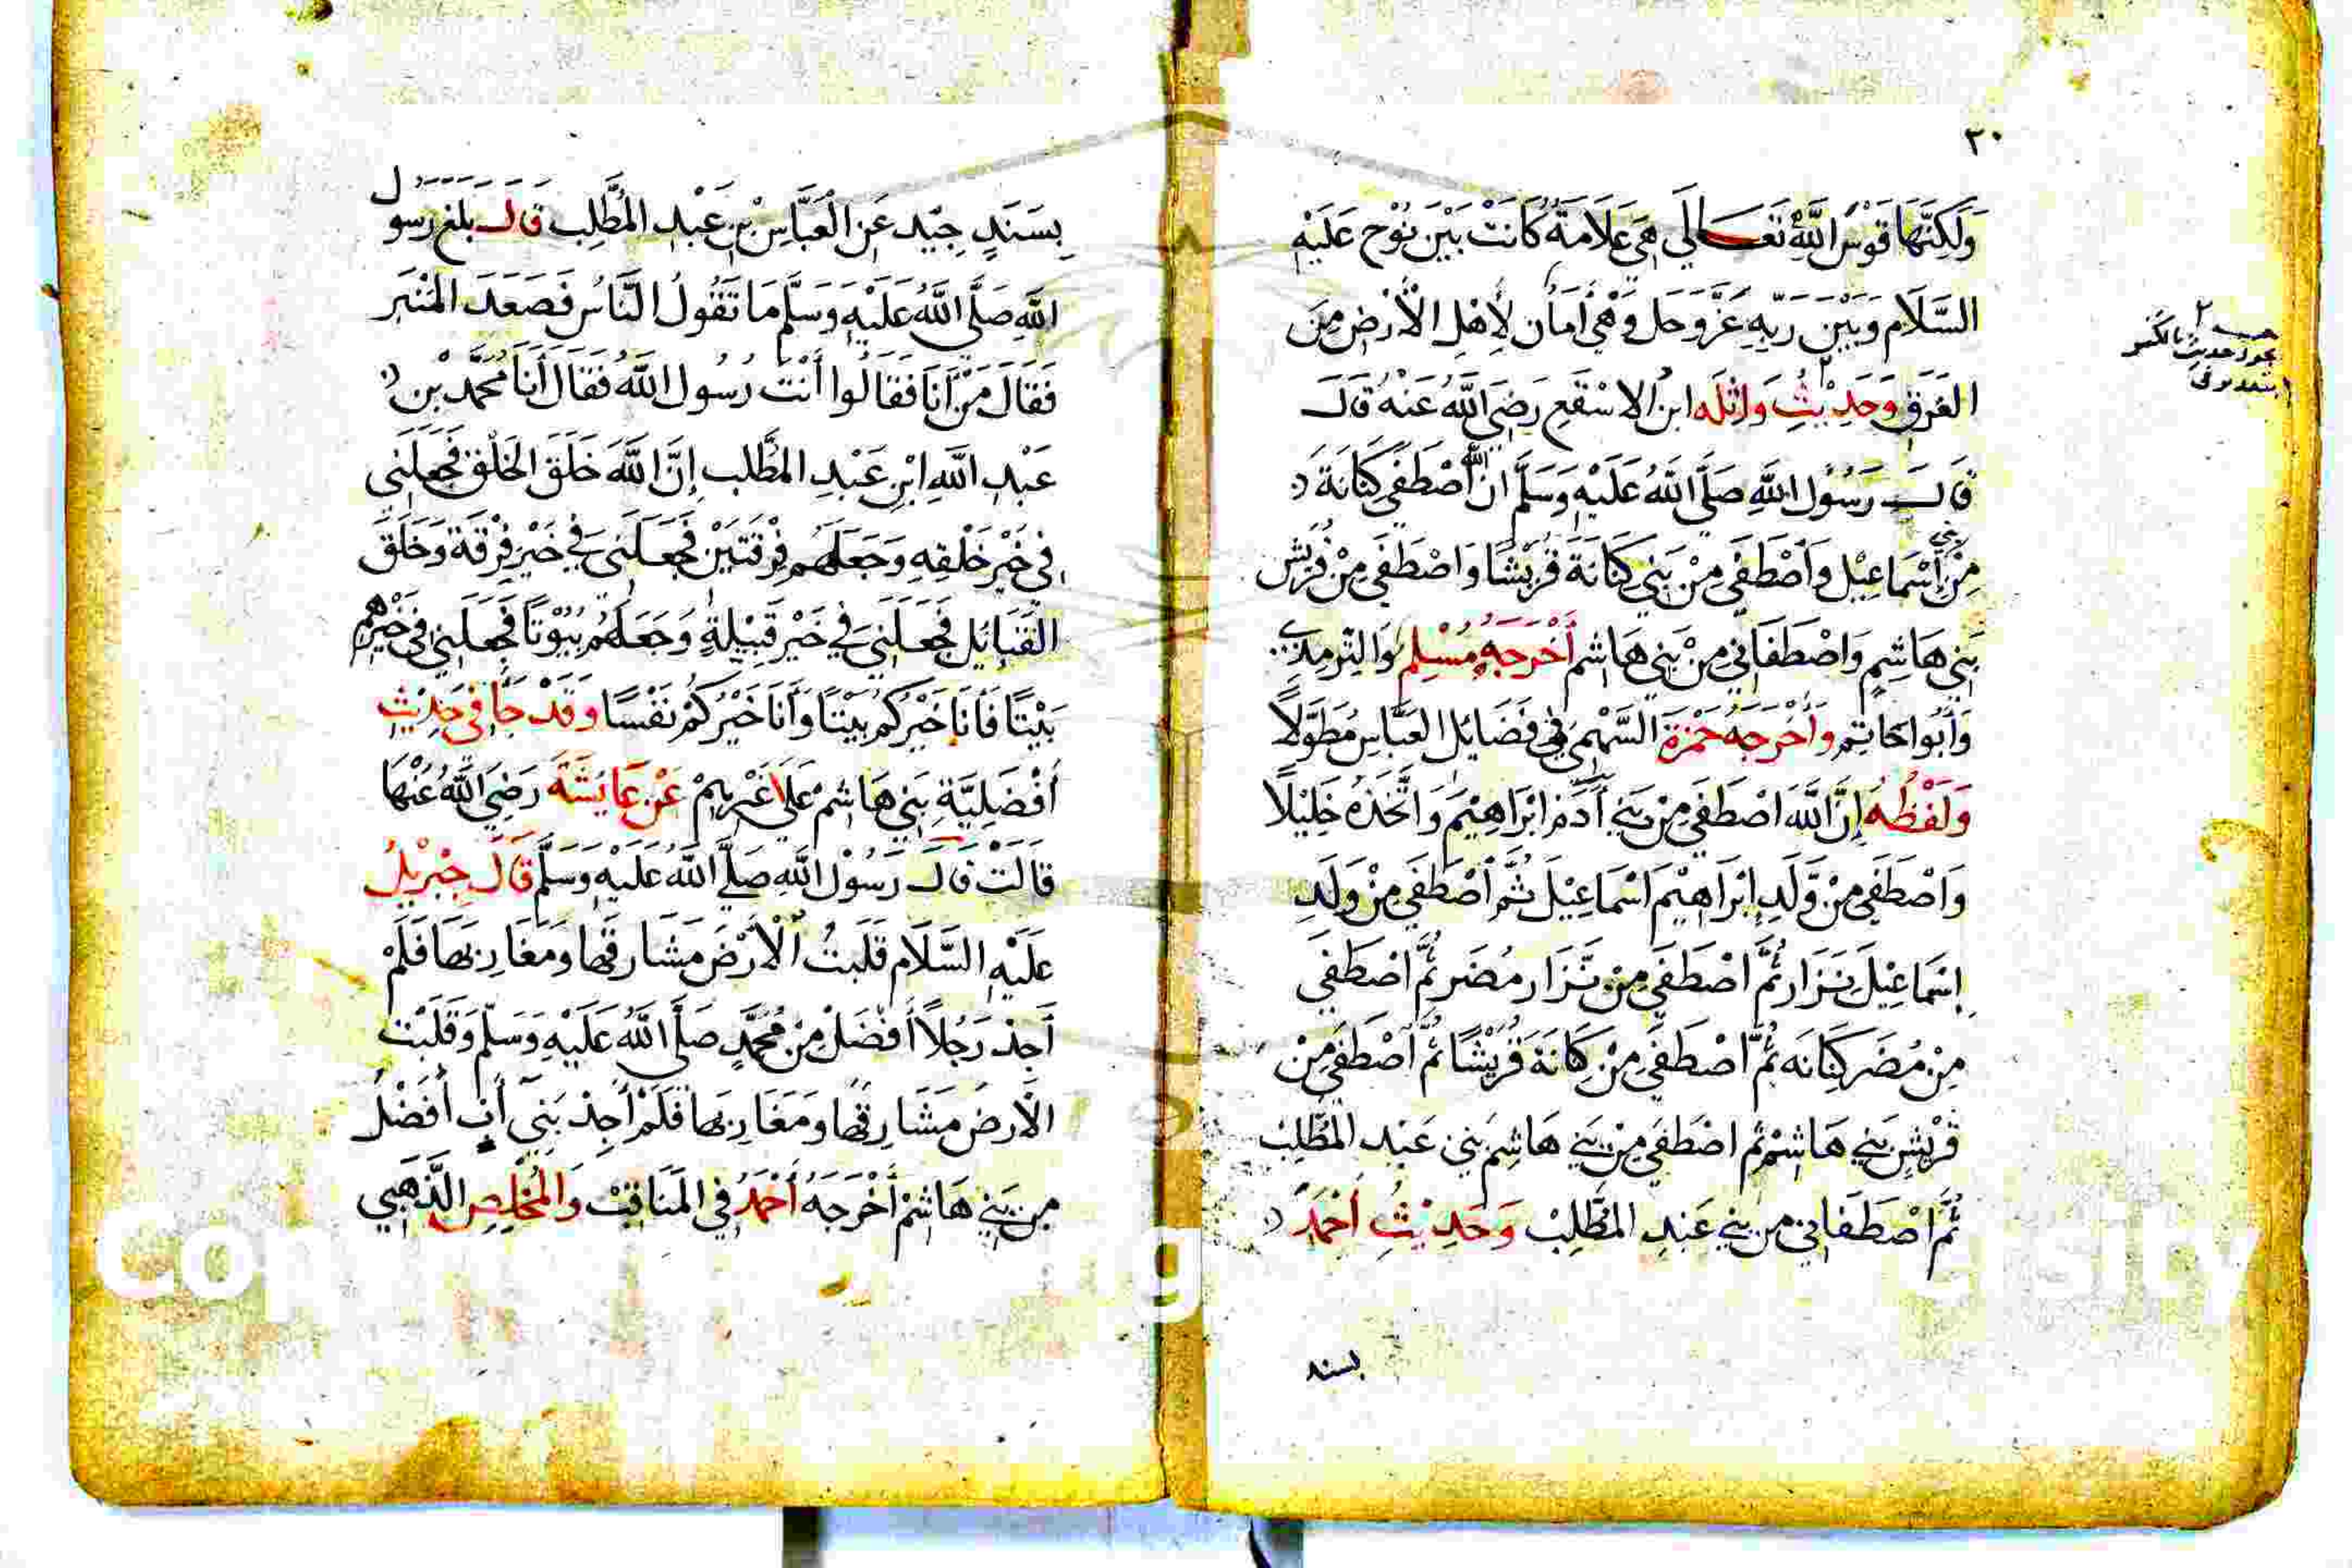 ٣٠
وَلَكِنَّهَا قَوْسُ اللَّهِ تَعَالَى هِيَ عَلَامَةٌ كَانَتْ بَيْنَ نُوْحٍ عَلَيْهِ
السَّلَامِ وَبَيْنَ رَبِّهِ عَزَّ وَجَل وَهْيَ أَمَان لِأَهْلِ الْأَرْضِ مِنَ
الغَرَقِ وَحَدِيْثِ وَاثِلَه ابن الاسْقَعِ رَضِيَ اللَّهُ عَنْهُ قَالَ
قَالَ رَسُوْلُ اللَّهِ صَلَّى اللَّهُ عَلَيْهِ وَسَلَّمَ انَّ اللَّه أَصْطَفَى كَنَانَةَ
مِنْ بَنِي أَسْمَاعِيْل وَأَصْطَفَى مِنْ بَنِي كَنَانَةَ قُرَيْشًا وَاصْطَفَى مِنْ قُرَيْش
بَنِي هَاشِمٍ وَاصْطَفَانِي مِنْ بَنِي هَاشم أَخْرَجَهُ مُسْلِم وَالتِّرْمِذِي
وَأَبُوا حَاتِمٍ وَأَخْرَجَهُ حَمْزَةَ السَّهْمِي فِي فَضَائِل العَبَّاسِ مُطَوَّلًا
وَلَفْظُهُ إِنَّ اللَّهَ اصْطَفَى مِنْ بَنِي أَدَمَ ابْرَاهِيْمَ وَاتَّخَذَهُ خَلِيْلًا
وَاصْطَفَى مِنْ وَلَدِ إِبْرَاهِيْمَ اسْمَاعِيْلَ ثُمَّ أَصْطَفَى مِنْ وَلَدِ
إِسْمَاعِيْلَ نَزَار ثُمَّ اصْطَفَى مِنْ نَزَار مُضَر ثُمَّ اصْطَفَى
مِنْ مُضَر كَنَانَه ثُمَّ اصْطَفَى مِنْ كَانَةَ قُرَيْشًا ثُمَّ أَصْطَفَى مِنْ
قُرَيْشٍ بَنِي هَاشِمْ ثُم اصْطَفَى مِنْ بَنِي هَاشِم بَنِي عَبْدِ المُطَّلِبْ
ثُمَّ اصْطَفَانِي مِن بَنِي عَبْدِ المُطَّلِبْ وَحَدِيْثِ أَحْمَدَ
بسند
بِسَنَدٍ جَيِّد عَنِ الْعَبَّاسِ بْنِ عَبْدِ المُطَّلِب قَالَ بَلَغَ رَسُول
اللَّهِ صَلَّى اللَّهُ عَلَيْهِ وَسَلَّمَ مَا تَقُولُ النَّاسُ فَصَعَدَ المِنْبَر
فَقَالَ مَنْ أَنَا فَقَالُوا أَنْتَ رَسُول اللَّهُ فَقَالَ أَنَا مُحَمَّد بْن
عَبْدِ اللَّهِ ابْنِ عَبْدِ المطَّلب إِنَّ اللَّهَ خَلَقَ الخَلْقَ فَجَعَلَنِي
فِي خَيْر خَلْقِهِ وَجَعَلَهُم فِرْقَتَيْنِ فَجَعَلَنِي فِي خَيْر فِرْقَة وَخَلَقَ
القَبَائِل فَجَعَلَنِي فِي خَيْر قَبِيْلَةٍ وَجَعَلَهُم بُيُوْتًا فَجَعَلَنِي فِي خَيْرِهُم
بَيْتًا فَأَنَا خَيْركُم بَيْتًا وَأَنَا خَيْركُمْ نَفْسًا وَقَدْ جَا فِي حَدِيْثِ
أَفْضَلِيَّةِ بَنِي هَاشم عَلَى غَيْرِهِمْ عَنْ عَايِشَةَ رَضِيَ اللَّهُ عَنْهَا
قَالَتْ قَالَ رَسُوْل اللَّه صَلَّى اللَّهُ عَلَيْهِ وَسَلَّمَ قَالَ جِبْرِيْلُ
عَلَيْهِ السَّلَام قَلَبتُ الْأَرْضَ مَشَارِقهَا وَمَغَارِبهَا فَلَمْ
أَجِدْ رَجُلًا أَفْضَلْ مِنْ مُحَمَّدٍ صَلَّى اللَّهُ عَلَيْهِ وَسَلَّم وَقَلَبْت
الْأَرض مَشَارِقهَا وَمَغَارِبهَا فَلَمْ أَجِدْ بَنِي أَبٍ أَفْضَلُ
مِن بَنِي هَاشمْ أَخْرَجَهُ أَحْمَدُ فِي المَنَاقِبْ وَالمُخَلِّصِ الذَّهَبِي